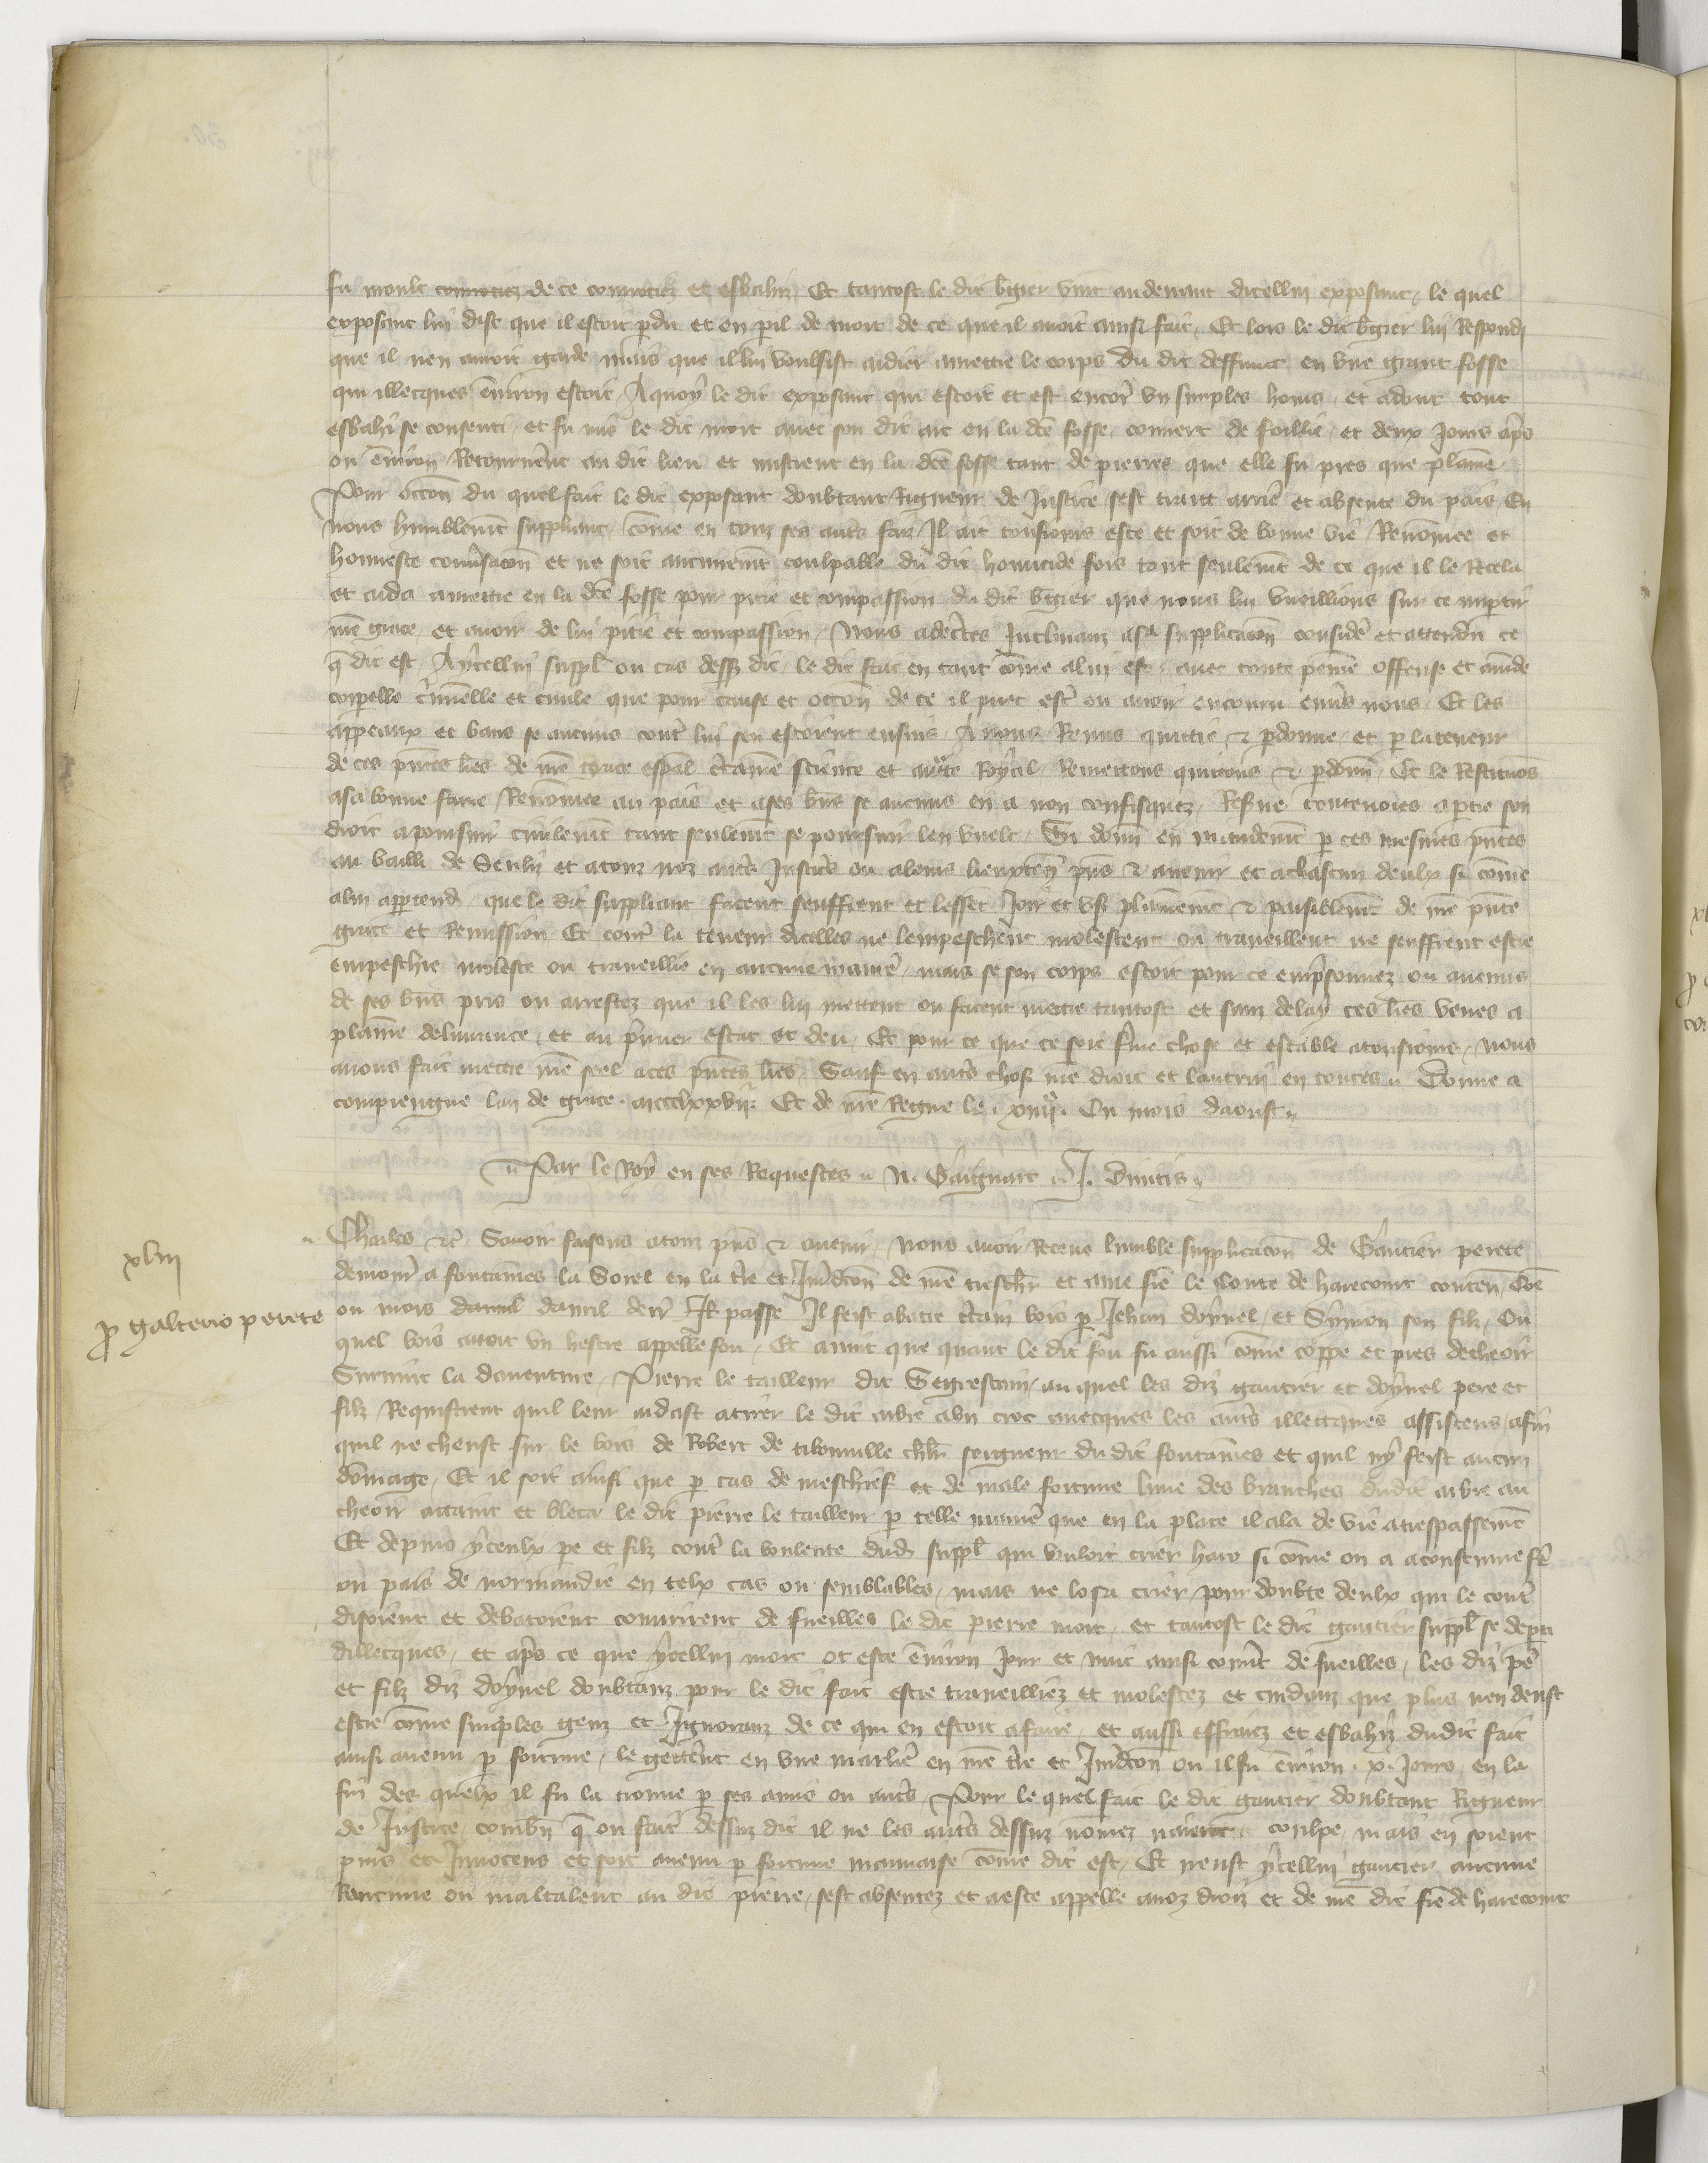 fu moult courrociez de ce courrociez et esbahiz Et tantost le dit b̃gier vint audevant dicellui exposant, le quel
exposant lui dist que il estoit p̃du et en p̃il de mort de ce que il avoit ainsi fait, Et lors le dit b̃gier lui Respondi
que il nen avoit garde mais que il lui voulsist aidier amettre le corps du dit deffunct en vne grant fosse
qui illecques ẽviron estoit, Aquoy le dit exposant qui estoit et est encor̃ vn simples homs et adont tout
esbahi se consenti, et fu mis le dit mort avec son dit arc en la dc̃e fosse couvert de foillie, et deux Jours ap̃s
ou ẽviron Retournẽrẽt au dit lieu et mistrent en la dc̃e fosse tant de pierres que elle fu pres que plaine,
Pour occõn du quel fait le dit exposant doubtant Rigueur de Justice sest trait arrie et absente du pais En
nous humblemẽt suppliant, cõme en touz ses aut̃s faiz Il ait tousiours este et soit de bonne vie Renõmee et
honneste conṽsacõn et ne soit aucunemẽt coulpable du dit homicide fors tant seulemẽt de ce que il le Recela
et aida amettre en la dc̃e fosse pour pitie et compassion du dit b̃gier que nous lui vueillions sur ce impartir
nr̃e grace, et avoir de lui pitie et compassion, Nous adec̃tes Inclinanz asa supplicacõn considere et attendu ce
q̃ dit est, Aycellui suppl̃ ou cas dess⁹ dit, le dit fait en tant cõme alui est avec toute peine offense et am̃de
corporelle c̃minelle et civile que pour cause et occõn de ce il puet est̃ ou avoir encouru enṽs nous, Et les
appeaux et bans se aucuns cont̃ lui sen estoient ensuis, Avons Remis quittie & p̃donne, et p̃ lateneur
de ces p̃ntes l̃res de nr̃e grace esp̃al c̃taine science et auct̃te Royal Remettons quittons & p̃donñ, Et le Restituõs
asa bonne fame Renõmee au pais et ases b̃ns se aucuns en a non confisquez, Reserve toutevoies aptie son
droit apoursuir civilemẽt tant seulemẽt se poursuir len vuelt, Si donñ en mandemẽt p̃ ces mesmes p̃ntes
au bailli de Senliz et atouz noz aut̃s Justic̃rs ou aleurs lieuxteñ p̃ns & avenir et achascun deulx si cõme
alui appartendra que le dit suppliant facent seuffrent et lessent Joir et user plainemẽt & paisiblemẽt de nr̃e p̃nte
grace et Remission Et cont̃ la teneur dicelles ne lempeschent molestent ou traveillent ne seuffrent estre
empeschie moleste ou traveillie en aucune manie, mais se son corps estoit pour ce emp̃sonnez ou aucuns
de ses b̃ns pris ou arrestez que il les lui mettent ou facent mettre tantost et sanz delay ces l̃res veues a
plaine delivrance, et au p̃mier estat et deu, Et pour ce que ce soit ferme chose et estable atousiours, Nous
avons fait mettre nr̃e seel aces p̃ntes l̃res, Sauf en aut̃s choses nr̃e droit et lautrui en toutes. Donne a
compiengne lan de grace mccclxxvij Et de nr̃e Regne le xiiij. Ou mois daoust.
Par le Roy en ses Requestes. N. Gaignart. J. Divitis
xliij
p̃ galterio perete
Charles &c. Savoir faisons atouz p̃ns & avenir, Nous avoir Receue lumble supplicacõn de Gautier perete
demour̃ a fontaines la Sorel en la t̃re et Jur̃dicõn de nr̃e treschier et ame fr̃e le Conte de harecourt conteñ, Cõe
ou mois davril davril dern̄ passe Il feist abatre c̃tain bois p̃ Jehan doynel, et Symon son filz, Ou
quel bois avoit vn hestre appelle fou, Et avint que quant le dit fou fu aussi cõme coppe et pres decheoir
Survint la daventure, Pierre le tailleur dit Segrestain, au quel les diz gautier et doynel pere et
filz Requistrent quil leur aidast atirer le dit arbre avn croc avecques les aut̃s illecques assistens, afin
quil ne cheust sur le bois de Robert de tibouville ch̃lr seigneur du dit fontaines et quil ny feist aucun
dõmage, Et il soit ainsi que p̃ cas de meschief et de male fortune lune des branches dudit arbre au
cheoir attaint et bleca le dit pierre le tailleur p̃ telle manie que en la place il ala de vie atrespassemẽt
Et depuis yceulx p̃e et filz cont̃ la voulente dud suppl̃ qui vouloit crier haro si cõme on a acoustume f̃e
ou pais de normandie en telx cas ou semblables, mais ne losa crier, pour doubte deulx qui le cont̃
disoient et debatoient couvrirent de fueilles le dit pierre mort, et tantost le dit gautier suppl̃ se dep̃ti
dillecques, et ap̃s ce que ycellui mort ot este ẽviron Jour et nuit ainsi couṽt de fueilles, les diz p̃e
et filz diz doynel doubtanz pour le dit fait estre traveilliez et molestez et cuidanz que plus nen deust
estre cõme simples genz et Ignoranz de ce qui en estoit afaire, et aussi effraiez et esbahiz dudit fait
ainsi avenu p̃ fortune, le gettẽrẽt en vne marlie en nr̃e t̃re et Jur̃dicõn ou il fu ẽviron .x. Jours, en la
fin des quelx il fu la trouve p̃ ses amis ou aut̃s, Pour le quel fait le dit gautier doubtant Rigueur
de Justice, combñ q̃ ou fait dessuz dit il ne les aut̃s dessuz nõmez naient coulpe, mais en soient
purs et Innocens et soit avenu p̃ fortune mauvaise cõme dit est, Et neust ycellui gautier aucune
Rancune ou maltalent au dit pierre, sest absentez et aeste appelle anoz droiz et de nr̃e dit fr̃e de harecourt